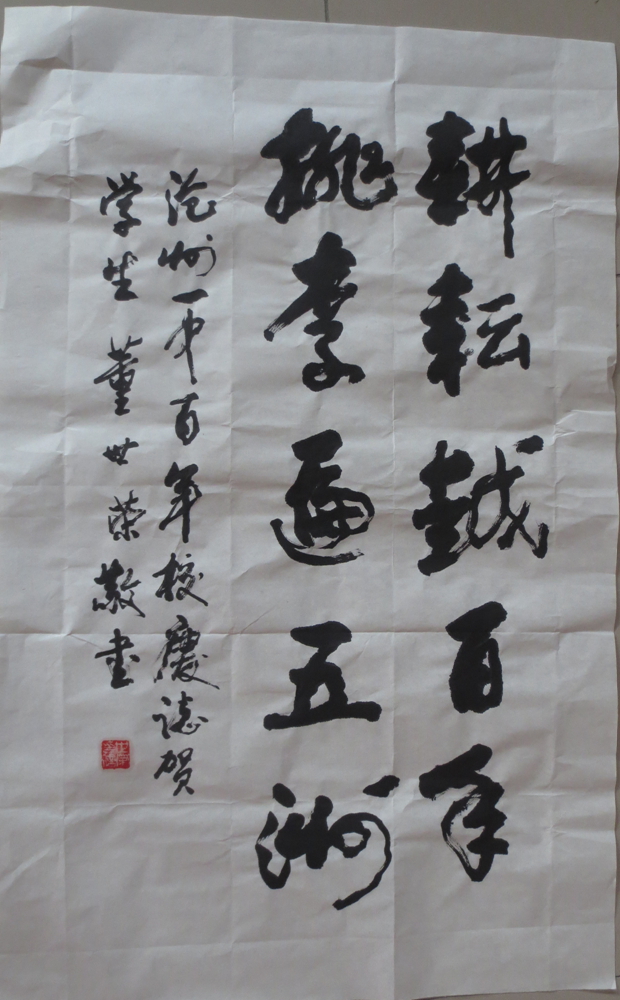 耕耘越百年
桃李遍五洲
沧州一中百年校慶誌贺
学生董世荣敬书